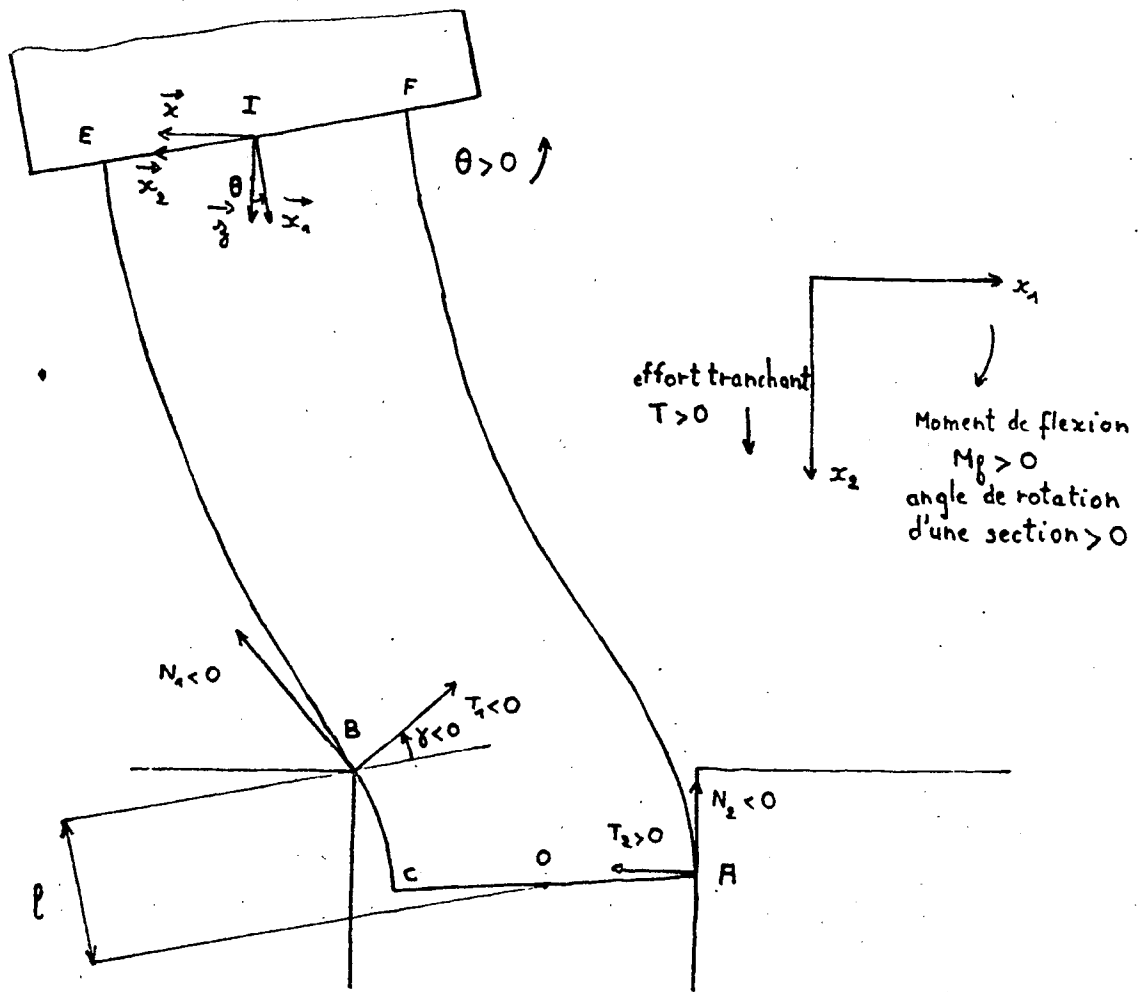 F
I
x
E
θ>0
x₂
θ
z
x₁
x₁
effort tranchant
T>0
Moment de flexion
Mf>0
x₂
angle de rotation
d'une section>0
N₁<0
T₁<0
B
γ<0
N₂<0
T₂>0
O
C
A
l